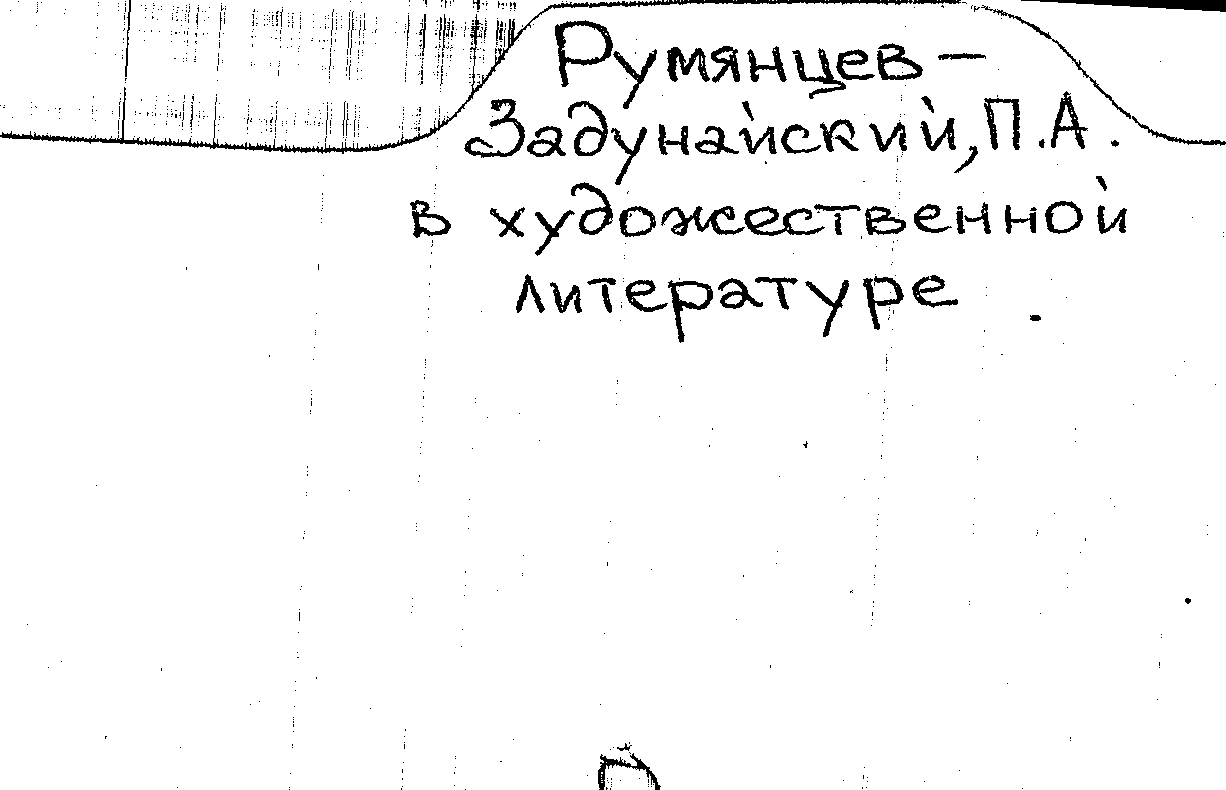 Румянцев —
Задунайский, П.А.
в художественной
литературе